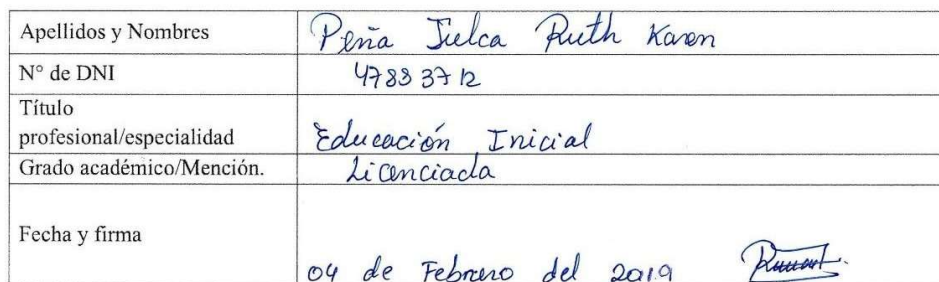 Apellidos y Nombres Peña Julca Ruth Karen
N° de DNI 47833712
Título
profesional/especialidad Educación Inicial
Grado académico/Mención. Licenciada
Fecha y firma 04 de Febrero del 2019